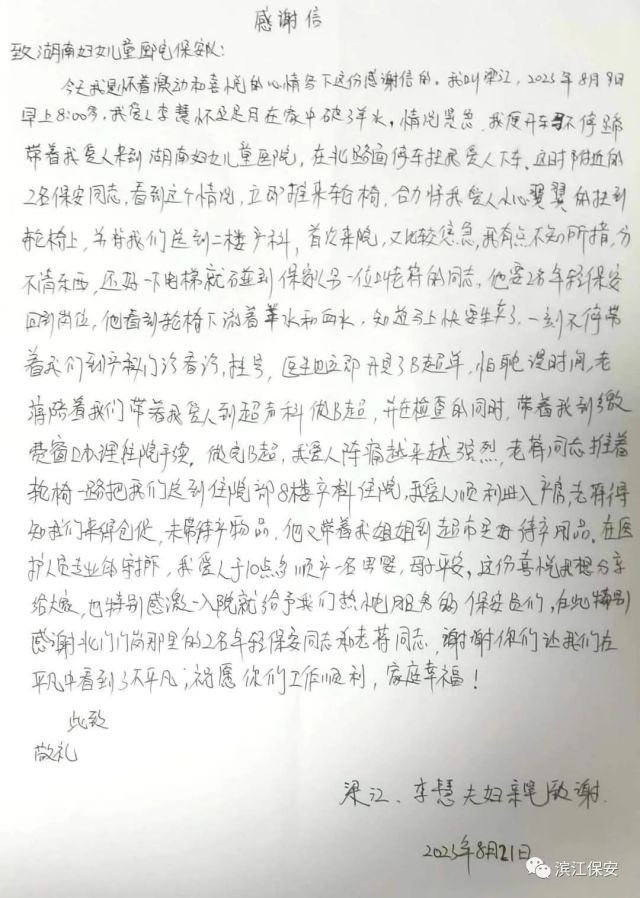 感谢信
致湖南妇女儿童医院保安队:
今天我是怀着激动和喜悦的心情写下这份感谢信的。我叫梁江,2023年8月9日
早上8:00多,我爱人李慧怀孕足月在家中破了羊水,情况紧急,我便开车不停蹄
带着我爱人来到湖南妇女儿童医院,在北路面停车扶我爱人下车。这时附近的
2名保安同志,看到这个情况,立即推来轮椅,合力将我爱人小心翼翼的扶到
轮椅上,并将我们送到二楼产科,首次来院,又比较焦急,我有点不知所措,分
不清东西,还好一下电梯就碰到保安队另一位叫老蒋的同志,他要2名年轻保安
回到岗位,他看到轮椅下流着羊水和血水,知道马上快要生产了,一刻不停带
着我们到产科门诊看诊,挂号,医生立即开具了B超单,怕耽误时间,老
蒋陪着我们带着我爱人到超声科做B超,并在检查的同时,带着我到缴
费窗口办理住院手续。做完B超,我爱人阵痛越来越强烈,老蒋同志推着
轮椅一路把我们送到住院部8楼产科住院,我爱人顺利进入产房,老蒋得
知我们来得仓促,未带待产物品,他又带着我姐姐到超市买好待产用品。在医
护人员专业的守护下,我爱人于10点多顺产一名男婴,母子平安。这份喜悦我想分享
给大家,也特别感激一入院就给予我们热忱服务的保安员们,在此特别
感谢北门门岗那里的2名年轻保安同志和老蒋同志,谢谢你们让我们在
平凡中看到了不平凡;祝愿你们工作顺利,家庭幸福!
此致
敬礼
梁江、李慧夫妇亲笔致谢.
2023年8月21日
滨江保安